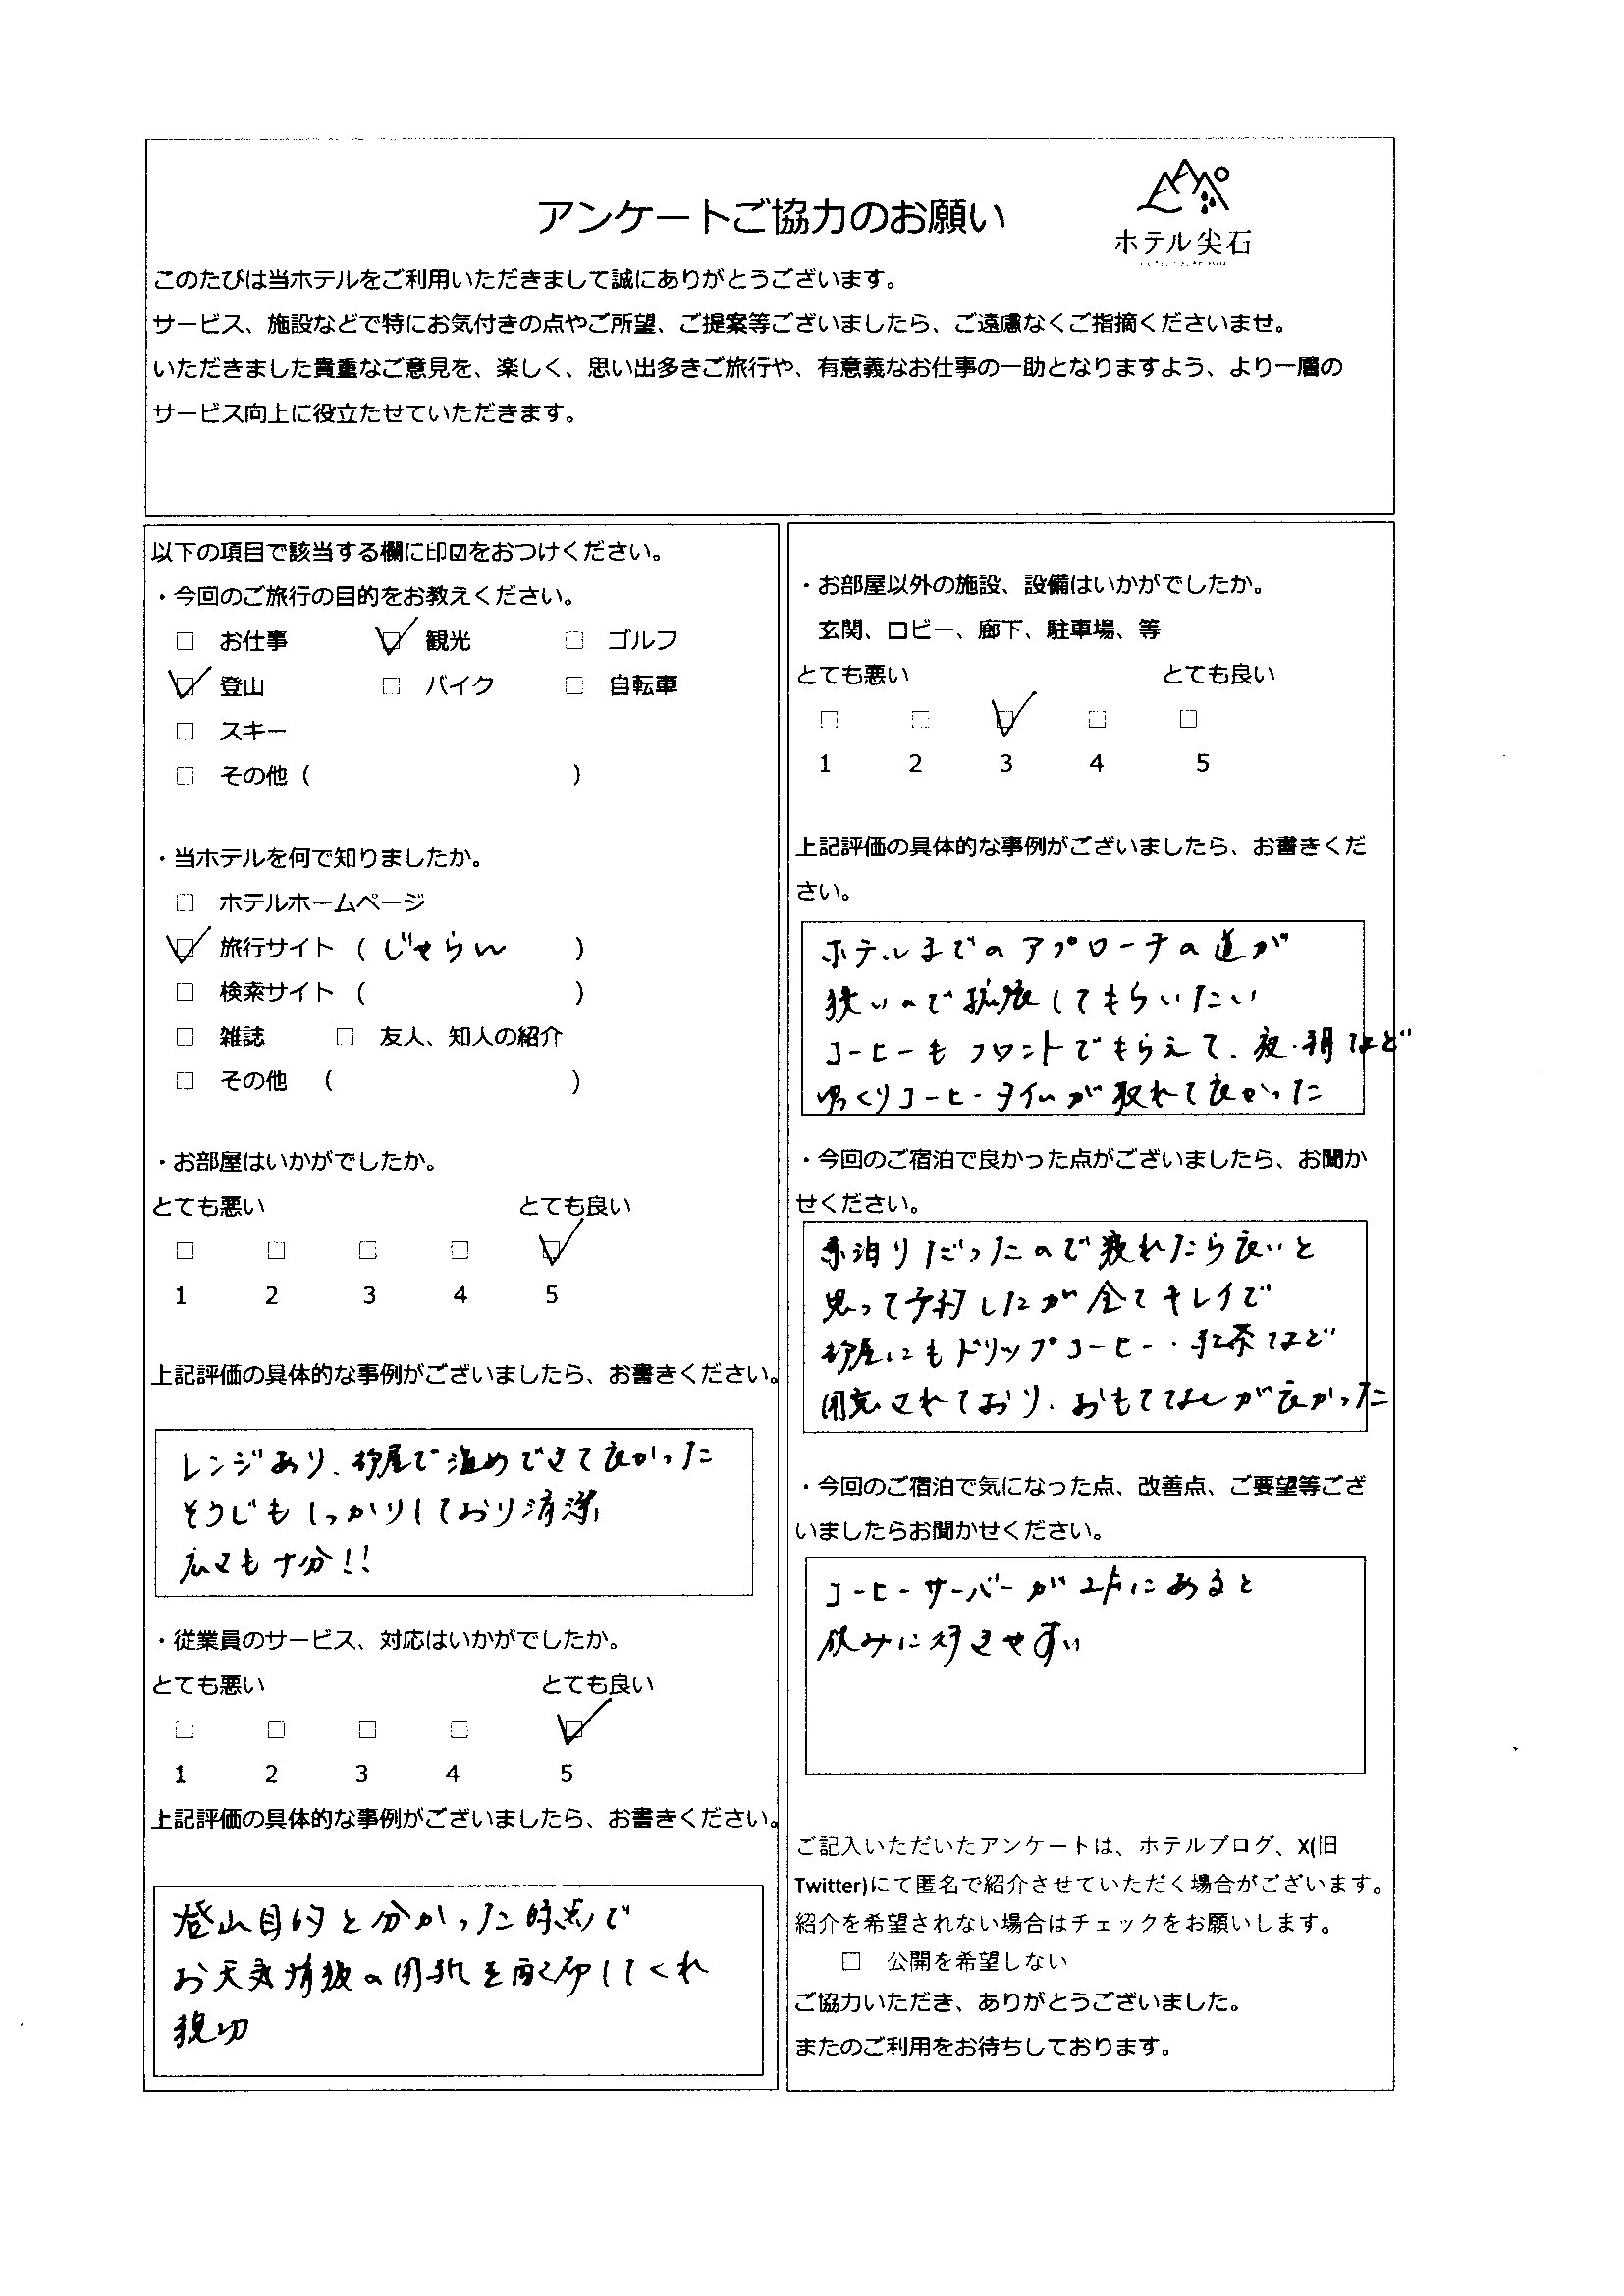 アンケートご協力のお願い
ホテル尖石
このたびは当ホテルをご利用いただきまして誠にありがとうございます。
サービス、施設などで特にお気付きの点やご所望、ご提案等ございましたら、ご遠慮なくご指摘くださいませ。
いただきました貴重なご意見を、楽しく、思い出多きご旅行や、有意義なお仕事の一助となりますよう、より一層の
サービス向上に役立たせていただきます。
以下の項目で該当する欄に印☑をおつけください。
・今回のご旅行の目的をお教えください。
□ お仕事 ☑ 観光 □ ゴルフ
☑ 登山 □ バイク □ 自転車
□ スキー
□ その他 ( )
・当ホテルを何で知りましたか。
□ ホテルホームページ
☑ 旅行サイト ( じゃらん )
□ 検索サイト ( )
□ 雑誌 □ 友人、知人の紹介
□ その他 ( )
・お部屋はいかがでしたか。
とても悪い とても良い
□ □ □ □ ☑
1 2 3 4 5
上記評価の具体的な事例がございましたら、お書きください。
レンジあり、部屋で温めできて良かった
そうじもしっかりしており清潔
広さも十分!!
・従業員のサービス、対応はいかがでしたか。
とても悪い とても良い
□ □ □ □ ☑
1 2 3 4 5
上記評価の具体的な事例がございましたら、お書きください。
登山目的と分かった時点で
お天気情報の用紙を配布してくれ
親切
・お部屋以外の施設、設備はいかがでしたか。
玄関、ロビー、廊下、駐車場、等
とても悪い とても良い
□ □ ☑ □ □
1 2 3 4 5
上記評価の具体的な事例がございましたら、お書きくだ
さい。
ホテルまでのアプローチの道が
狭いので拡張してもらいたい
コーヒーもフロントでもらえて、夜・朝など
ゆっくりコーヒータイムが取れて良かった
・今回のご宿泊で良かった点がございましたら、お聞か
せください。
素泊りだったので寝れたら良いと
思って予約したが全てキレイで
部屋にもドリップコーヒー・紅茶など
用意されており、おもてなしが良かった
・今回のご宿泊で気になった点、改善点、ご要望等ござ
いましたらお聞かせください。
コーヒーサーバーが2Fにあると
飲みに行きやすい
ご記入いただいたアンケートは、ホテルブログ、X(旧
Twitter)にて匿名で紹介させていただく場合がございます。
紹介を希望されない場合はチェックをお願いします。
□ 公開を希望しない
ご協力いただき、ありがとうございました。
またのご利用をお待ちしております。